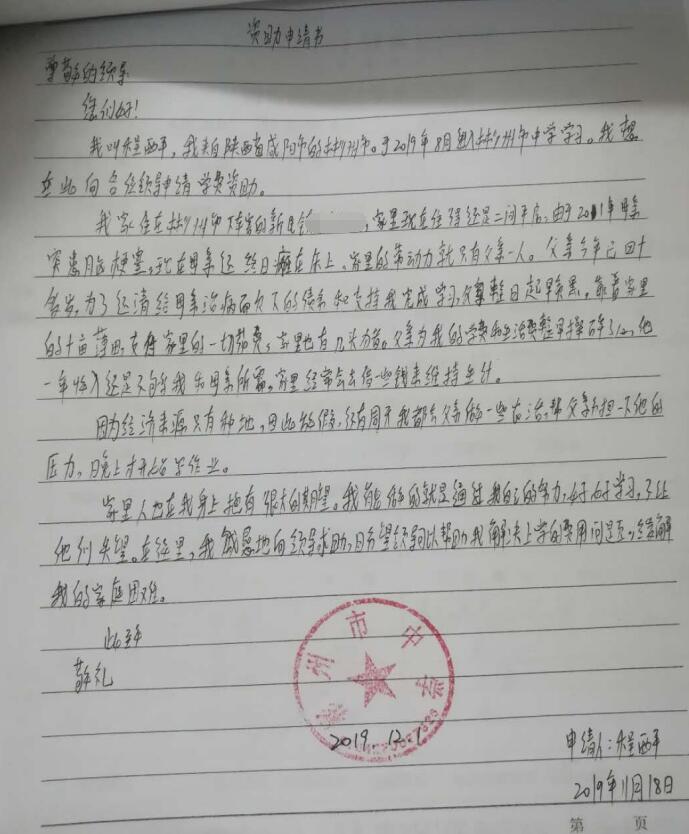 资助申请书
尊敬的领导
您们好!
我叫程西平,我来自陕西省咸阳市的彬州市。于2019年8月进入彬州市中学学习。我想
在此向各位领导申请学费资助。
我家住在彬州市 的新民镇 ,家里现在住得还是二间平房,由于2011年母亲
突患脑梗塞,现在母亲还终日瘫在床上,家里的劳动力就只有父亲一人。父亲今年已四十
多岁,为了还清给母亲治病而欠下的债务和支持我完成学习,父亲整日起早贪黑。靠着家里
的十亩薄田,支付家里的一切花费,家里也有 。父亲为我的学费和生活费整早操碎了心,他
一年收入还是不够我和母亲所需。家里经常会去借些钱来维持生计。
因为经济来源只有种地,因此放假,还有周末我都去父亲做一些农活,帮父亲分担一下他的
压力,晚上才开始写作业。
家里人也在我身上抱有很大的期望。我能做的就是通过我自己的努力,好好学习,不让
他们失望。在这里,我诚恳地向领导求助,日希望领导可以帮助我解决上学的费用问题,缓解
我的家庭困难。
此致
敬礼
州市中
2019.12.1
申请人:程西平
2019年11月18日
第 页